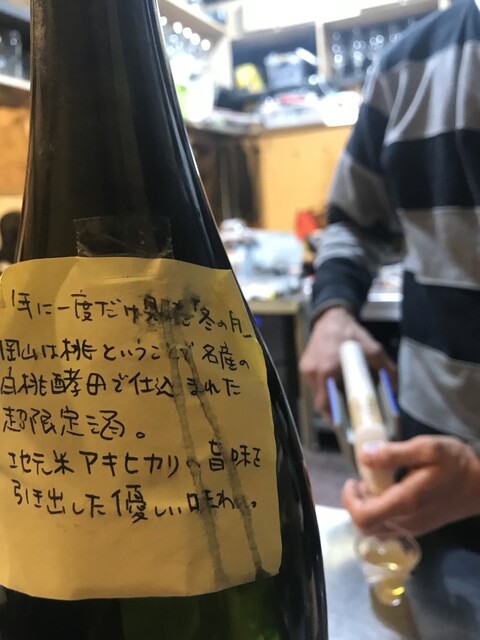 年に一度だけ 「冬の月」
岡山は桃ということで名産の
白桃酵母で仕込まれた
超限定酒。
地元米アキヒカリの旨味を
引き出した優しい味わい。